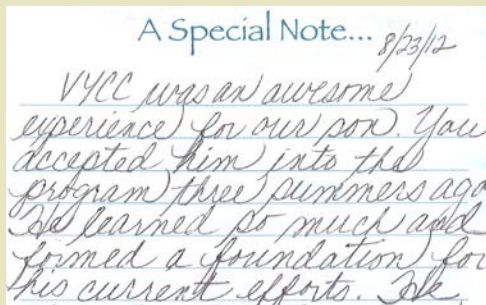 A Special Note...
8/23/12
VYCC was an awesome
experience for our son. You
accepted him into the
program three summers ago
He learned so much and
formed a foundation for
his current efforts. He